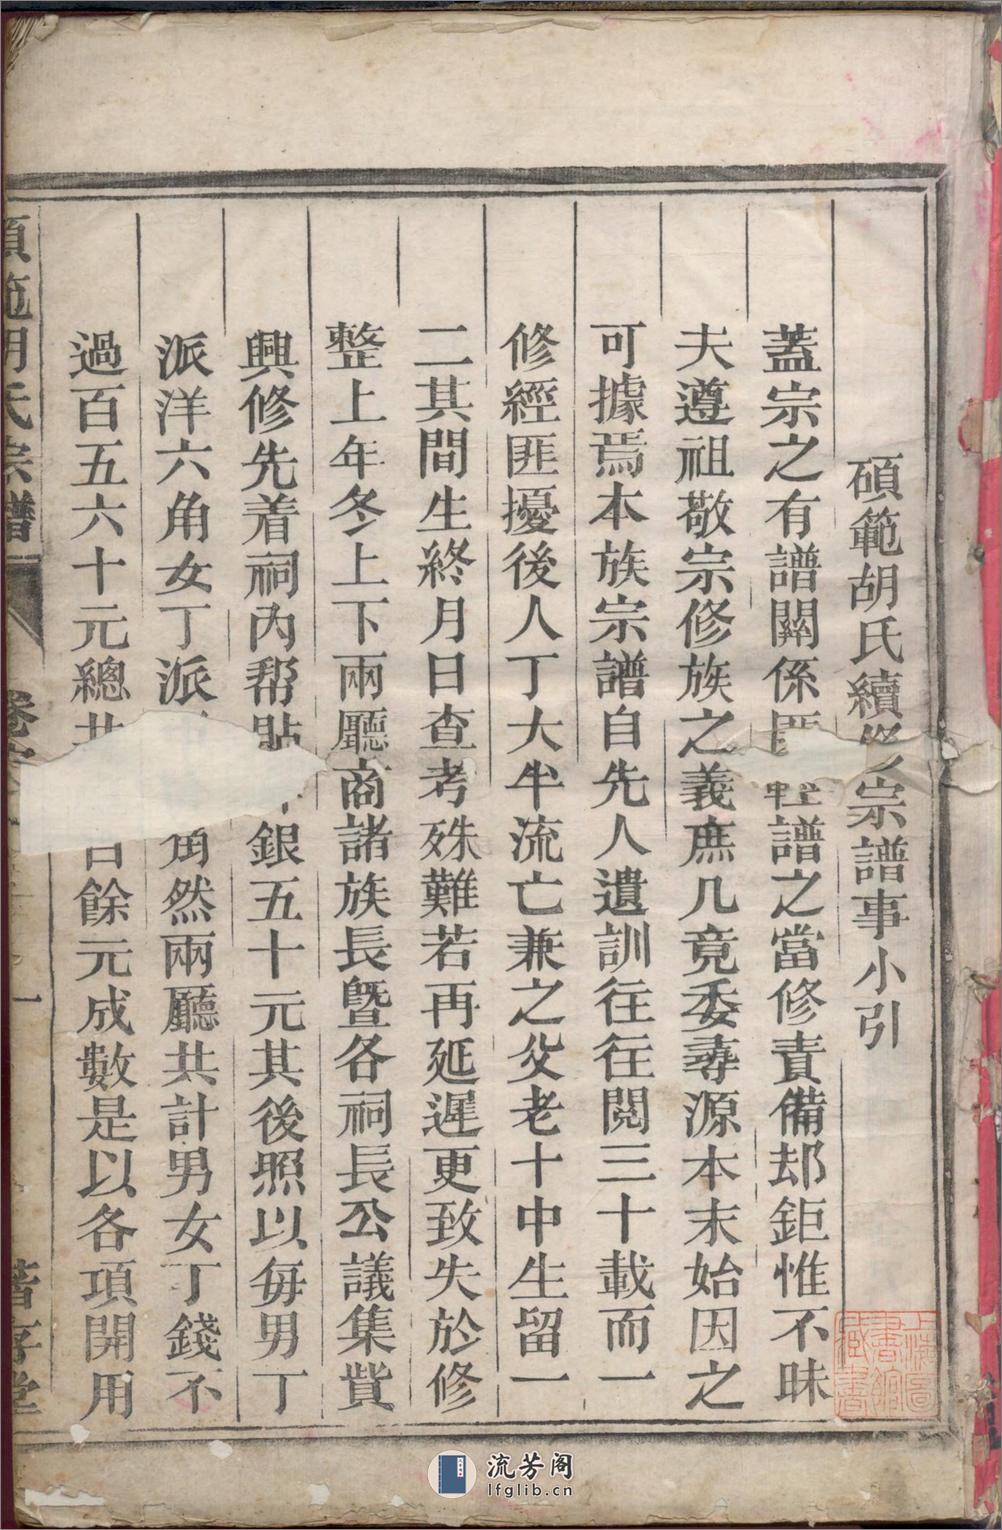 碩範胡氏續修宗譜事小引
蓋宗之有譜關係匪輕譜之當修責備却鉅惟不昧
夫遵祖敬宗修族之義庶几竟委尋源本末始因之
可據焉本族宗譜自先人遺訓往往閱三十載而一
修經匪擾後人丁大半流亡兼之父老十中生留一
二其間生終月日查考殊難若再延遲更致失於修
整上年冬上下兩廳商諸族長曁各祠長公議集貲
興修先着祠內帮貼銀五十元其後照以每男丁
派洋六角女丁派角然兩廳共計男女丁錢不
過百五六十元總共百餘元成數是以各項開用
碩範胡氏宗譜
卷
一
堂
上海圖書館藏書
流芳阁
lfglib.cn